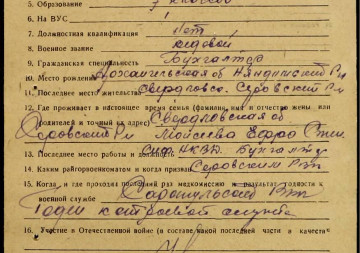 5. Образование 7 классов
6. На ВУС 1
7. Должностная квалификация нет
8. Военное звание рядовой
9. Гражданская специальность Бухгалтер
10. Место рождения Архангельская об Няндомский Рн
11. Последнее место жительства Свердловс. Серовский Рн
12. Где проживает в настоящее время семья (фамилия, имя и отчество жены или
родителей и точный их адрес) Свердловская об
Серовский Рн Моисеева
13. Последнее место работы и должность НКВД. Бухгалтер
14. Каким райгорвоенкоматом и когда призван Серовским Рвк
15. Когда и где проходил последний раз медкомиссию и результат годности к
военной службе Сарапульский Рвк
Годен к строевой службе
16. Участие в Отечественной войне (в составе какой последней части и в качестве